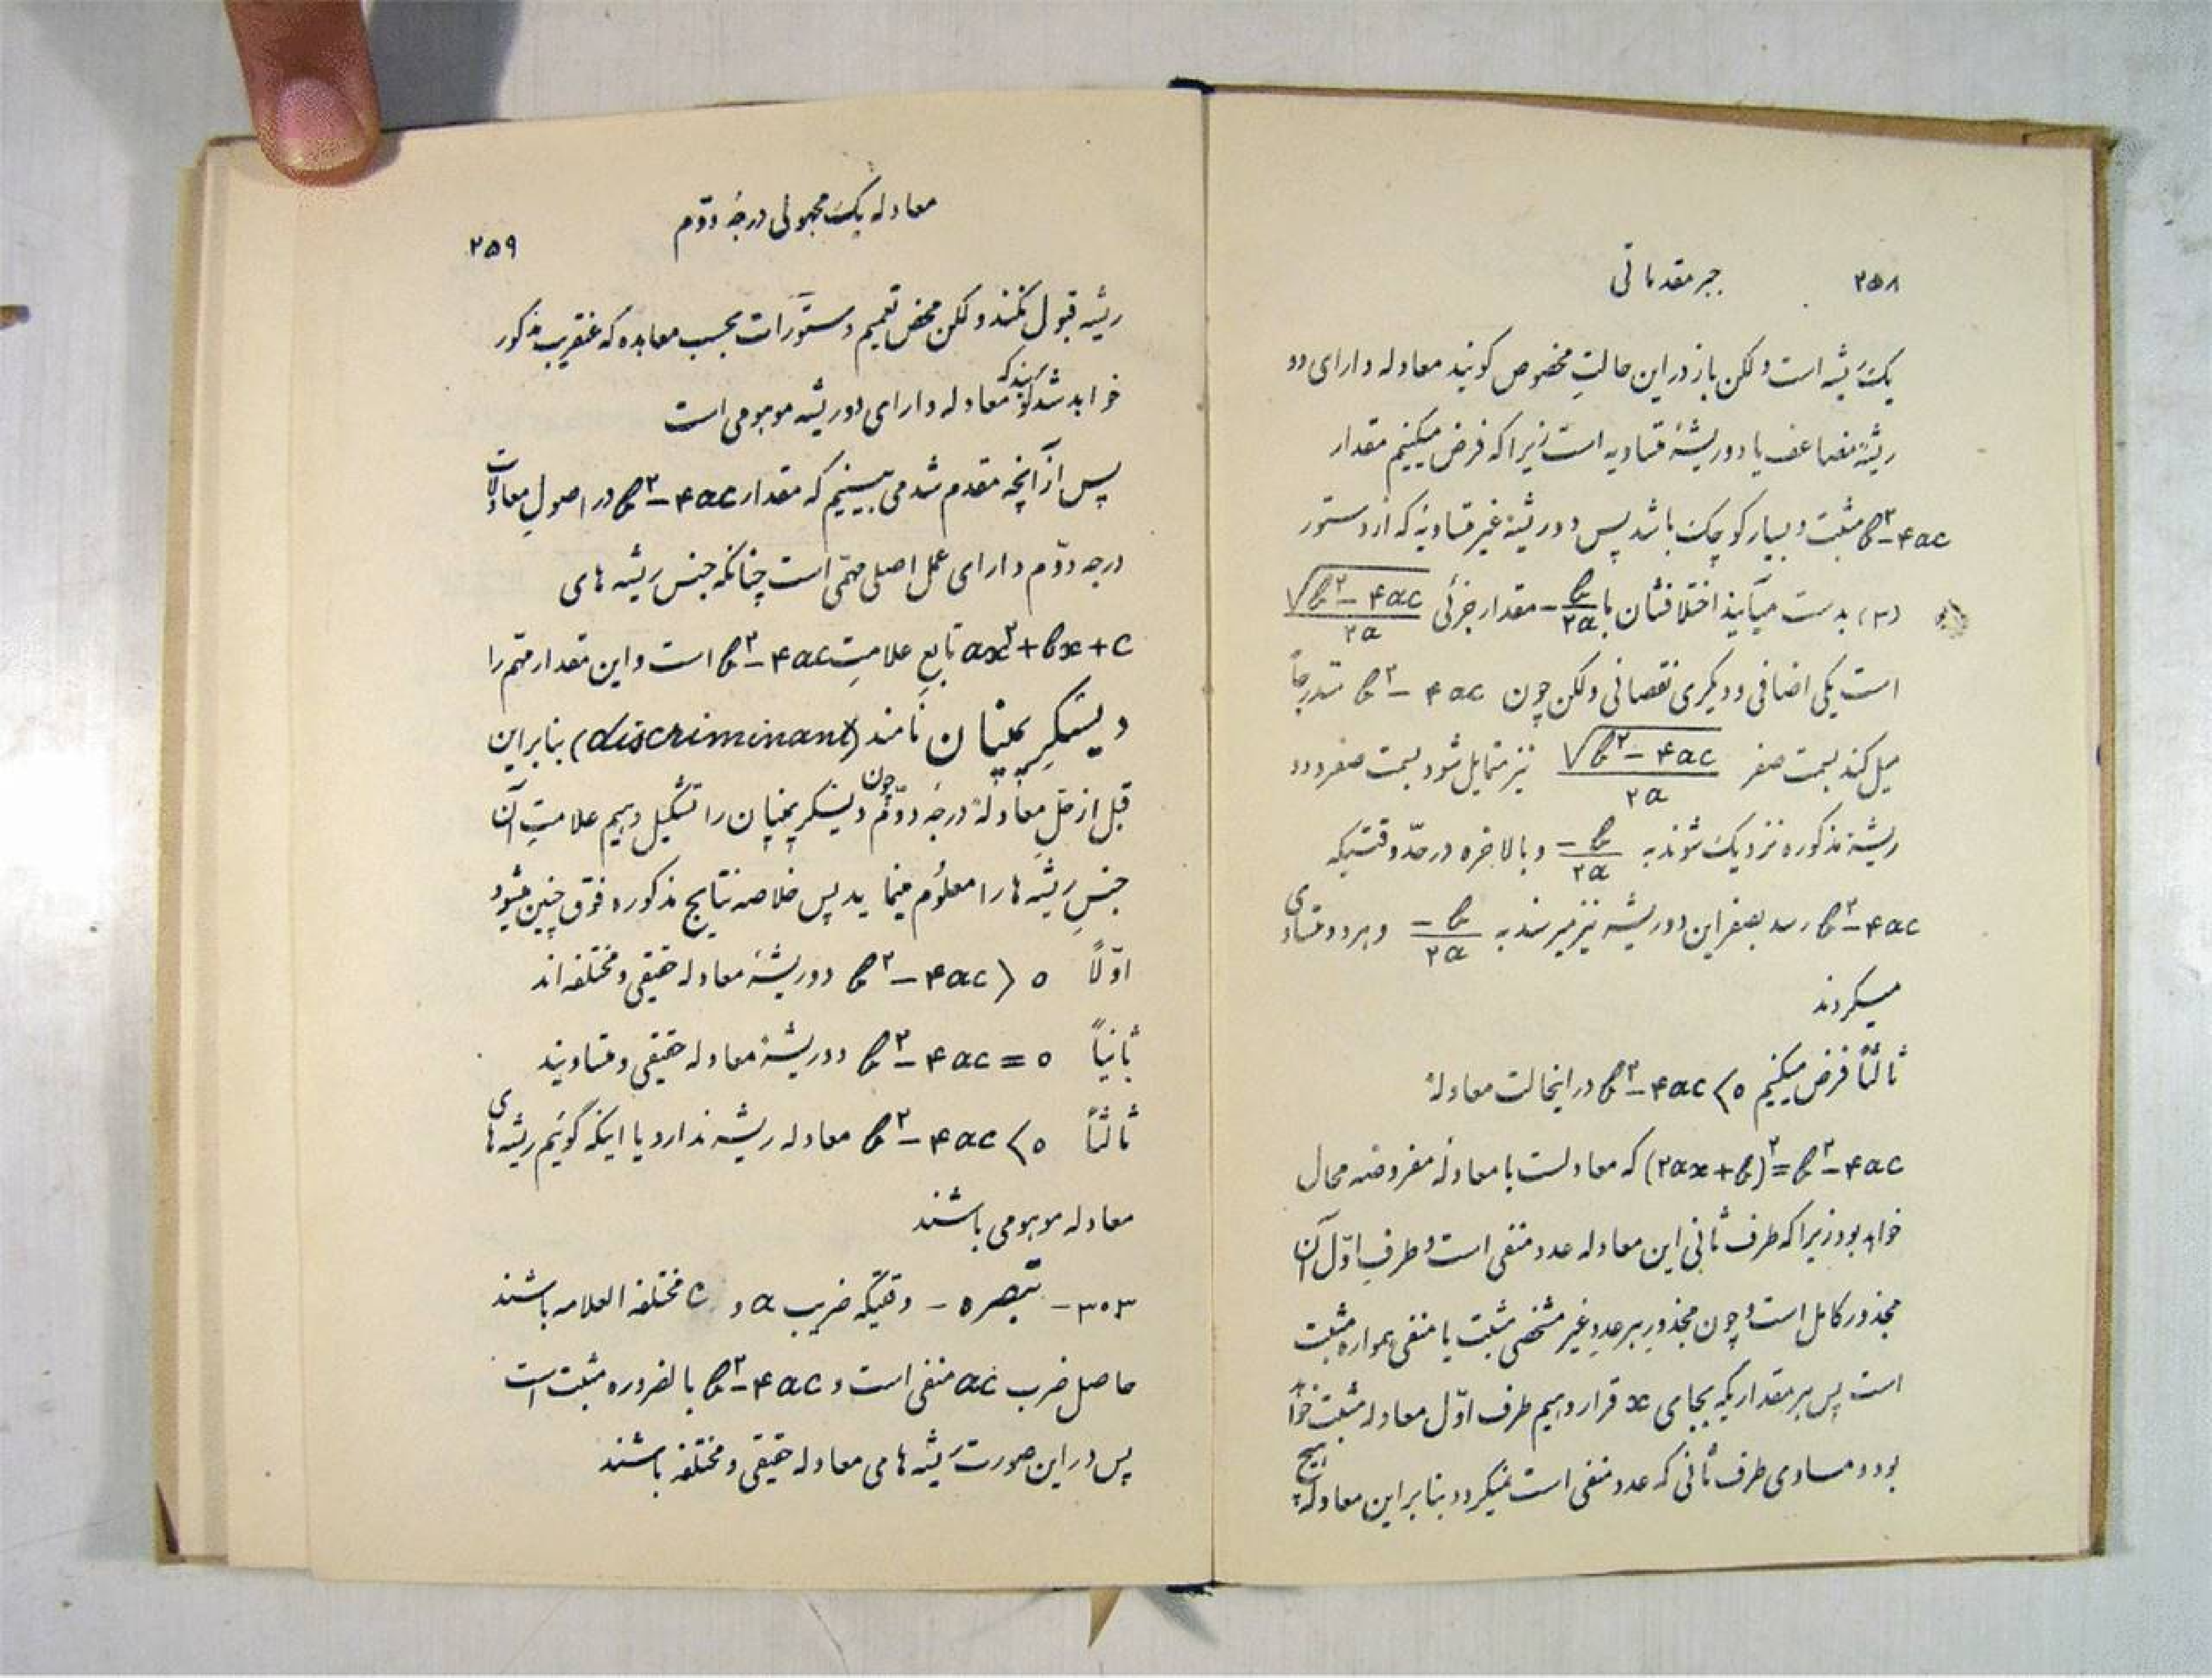 ۲۵۸ جبر مقدماتی
یک ریشه است ولکن باز در این حالتِ مخصوص گویند معادله دارای دو
ریشهٔ مضاعف یا دو ریشهٔ متساویه است زیرا که فرض میکنیم مقدار
b²-۴ac مثبت و بسیار کوچک باشد پس دو ریشهٔ غیر متساویه که از دستور
(۳) بدست میآیند اختلافشان با -b/۲a مقدار جزئی √(b²-۴ac)/۲a
است یکی اضافی و دیگری نقصانی ولکن چون b²-۴ac متدرجاً
میل کند بسمت صفر √(b²-۴ac)/۲a نیز متمایل شود بسمت صفر و دو
ریشهٔ مذکوره نزدیک شوند به -b/۲a و بالاخره در حدّ وقتیکه
b²-۴ac رسد بصفر این دو ریشه نیز میرسند به -b/۲a و هر دو متساوی
میگردند
ثالثاً فرض میکنیم b²-۴ac<۰ در اینحالت معادلهٔ
(۲ax+b)²=b²-۴ac که معادلست با معادلهٔ مفروضه محال
خواهد بود زیرا که طرف ثانی این معادله عدد منفی است و طرفِ اوّل آن
مجذور کامل است و چون مجذورِ هر عددِ غیر مشخصی مثبت یا منفی همواره مثبت
است پس هر مقداریکه بجای x قرار دهیم طرف اوّل معادله مثبت خواهد
بود و مساوی طرف ثانی که عدد منفی است نمیگردد بنابراین معادله هیچ
معادله یک مجهولی درجهٔ دوّم ۲۵۹
ریشه قبول نکنند ولکن محض تعمیم دستورات بحسب معاهده که عنقریب مذکور
خواهد شد گویند که معادله دارای دو ریشه موهومی است
پس از آنچه مقدم شد می بینیم که مقدار b²-۴ac در اصولِ معادلات
درجه دوّم دارای عمل اصلی مهمّی است چنانکه جنس ریشه های
ax²+bx+c تابعِ علامتِ b²-۴ac است و این مقدار مهم را
دیسکریمینان نامند (discriminant) بنابراین
قبل از حلِ معادلهٔ درجهٔ دوّم چون دیسکریمینان را تشکیل دهیم علامتِ آن
جنسِ ریشه ها را معلوم مینماید پس خلاصه نتایج مذکوره فوق چنین میشود
اوّلاً b²-۴ac>۰ دو ریشهٔ معادله حقیقی و مختلفه اند
ثانیاً b²-۴ac=۰ دو ریشهٔ معادله حقیقی و متساویند
ثالثاً b²-۴ac<۰ معادله ریشه ندارد یا اینکه گوئیم ریشه های
معادله موهومی باشند
۳۰۳- تبصره - وقتیکه ضریب a و c مختلفة العلامه باشند
حاصل ضرب ac منفی است و b²-۴ac بالضروره مثبت است
پس در این صورت ریشه های معادله حقیقی و مختلفه باشند